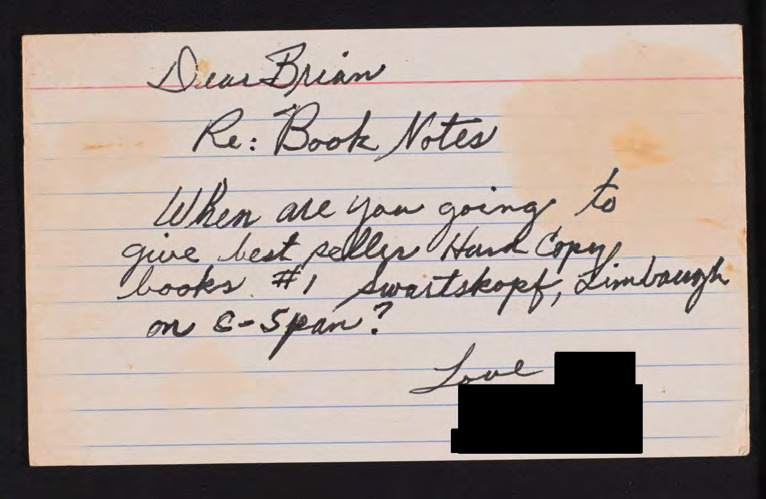 Dear Brian
Re: Book Notes
When are you going to
give best seller Hard Copy
books #1 Swartskopf, Limbaugh
on C-Span?
Love